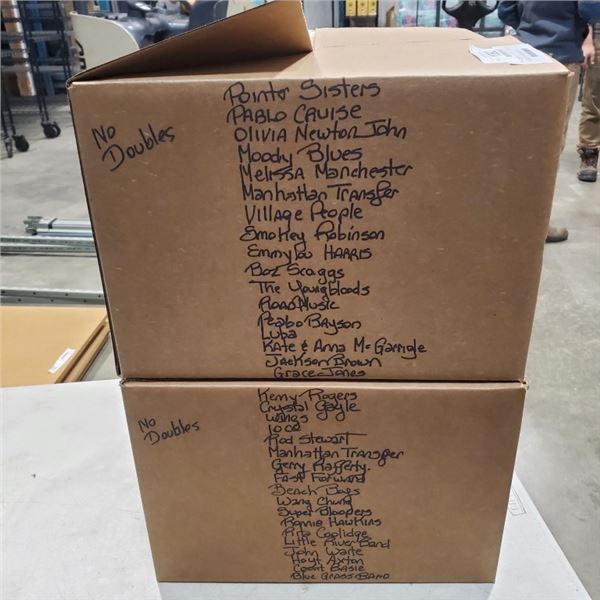 No
Doubles
Pointer Sisters
PABLO CRUISE
OLIVIA NEWTON JOHN
Moody Blues
MELISSA MANCHESTER
Manhattan Transfer
VILLAGE PEOPLE
Smokey Robinson
Emmylou HARRIS
Boz Scaggs
The Youngbloods
ROAD MUSIC
Peabo BRYSON
Luba
KATE & Anna Mc Garrigle
JACKSON BROWN
GRACE JONES
No
Doubles
Kenny Rogers
Crystal Gayle
Wings
10 CC
Rod Stewart
Manhattan Transfer
Gerry Rafferty.
FAST FORWARD
BEACH BOYS
WANG Chung
Super Bloopers
Ronnie HAWKINS
Rita Coolidge
Little River Band
John Waite
Hoyt Axton
Count BASIE
Blue GRASS BAND